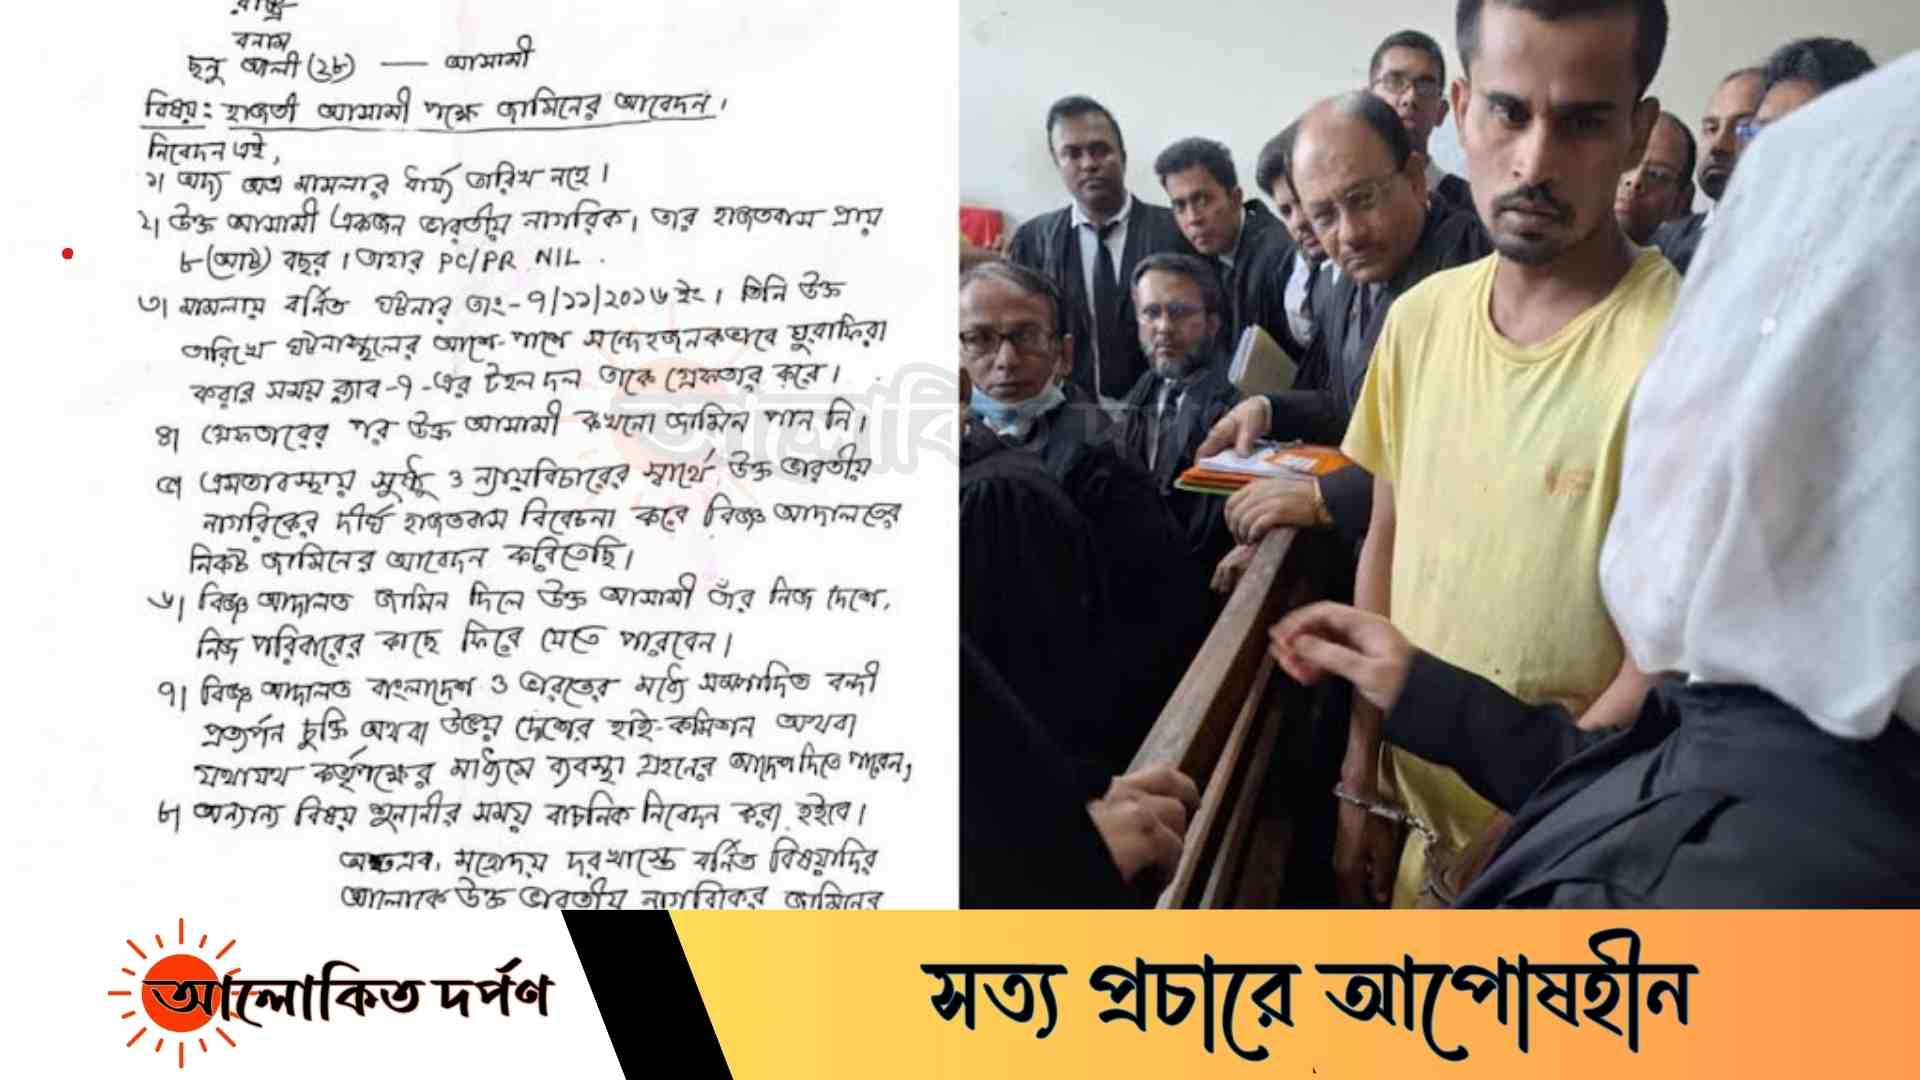 রাষ্ট্র
বনাম
ছনু আলী (২৮) — আসামী
বিষয়: হাজতী আসামী পক্ষে জামিনের আবেদন।
নিবেদন এই,
১। অদ্য অত্র মামলার ধার্য্য তারিখ নহে।
২। উক্ত আসামী একজন ভারতীয় নাগরিক। তার হাজতবাস প্রায়
৮ (আট) বছর। তাহার PC/PR NIL.
৩। মামলায় বর্নিত ঘটনার তাং-৭/১১/২০১৬ ইং। তিনি উক্ত
তারিখে ঘটনাস্থলের আশে-পাশে সন্দেহজনকভাবে ঘুরাফিরা
করার সময় র‍্যাব-৭-এর টহল দল তাকে গ্রেফতার করে।
৪। গ্রেফতারের পর উক্ত আসামী কখনো জামিন পান নি।
৫। এমতাবস্থায় সুষ্ঠু ও ন্যায়বিচারের স্বার্থে উক্ত ভারতীয়
নাগরিকের দীর্ঘ হাজতবাস বিবেচনা করে বিজ্ঞ আদালতের
নিকট জামিনের আবেদন করিতেছি।
৬। বিজ্ঞ আদালত জামিন দিলে উক্ত আসামী তাঁর নিজ দেশে,
নিজ পরিবারের কাছে ফিরে যেতে পারবেন।
৭। বিজ্ঞ আদালত বাংলাদেশ ও ভারতের মধ্যে সম্পাদিত বন্দী
প্রত্যর্পন চুক্তি অথবা উভয় দেশের হাই-কমিশন অথবা
যথাযথ কর্তৃপক্ষের মাধ্যমে ব্যবস্থা গ্রহনের আদেশ দিতে পারেন,
৮। অন্যান্য বিষয় শুনানীর সময় বাচনিক নিবেদন করা হইবে।
অতএব, মহোদয় দরখাস্তে বর্নিত বিষয়াদির
আলোকে উক্ত ভারতীয় নাগরিকের জামিনের
আলোকিত দর্পণ
আলোকিত দর্পণ
সত্য প্রচারে আপোষহীন